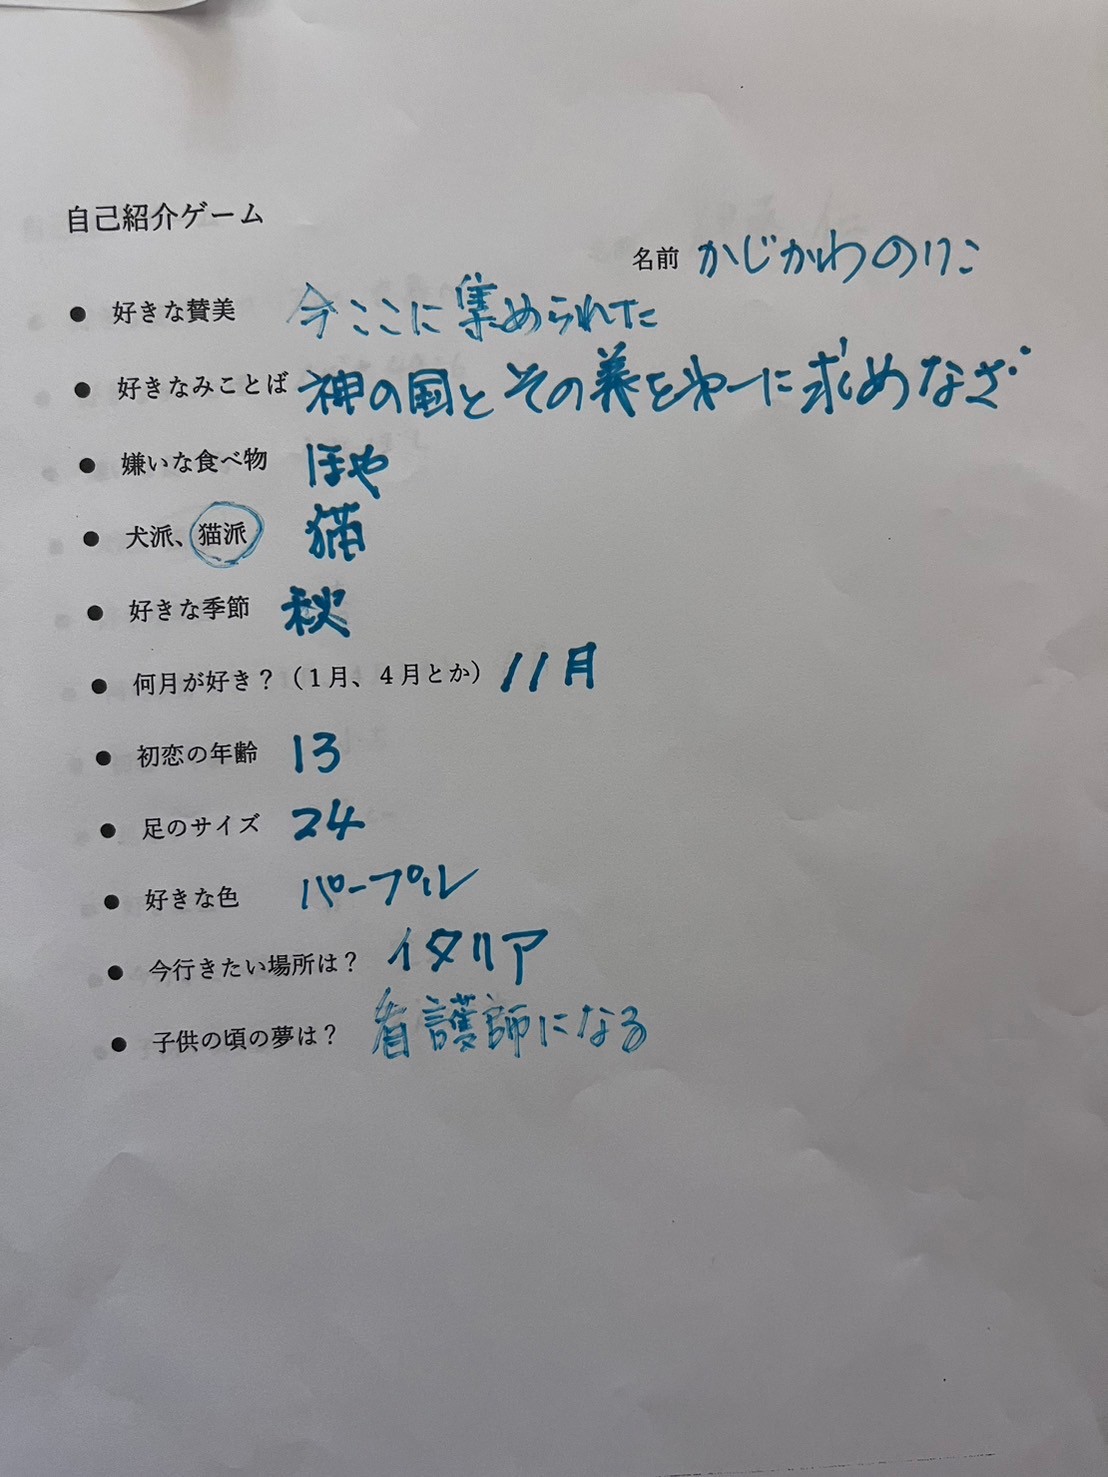 自己紹介ゲーム
名前 かじかわのりこ
● 好きな賛美 今ここに集められた
● 好きなみことば 神の国とその義を第一に求めなさ・・
● 嫌いな食べ物 ほや
● 犬派、猫派 猫
● 好きな季節 秋
● 何月が好き？（１月、４月とか） 11月
● 初恋の年齢 13
● 足のサイズ 24
● 好きな色 パープル
● 今行きたい場所は？ イタリア
● 子供の頃の夢は？ 看護師になる